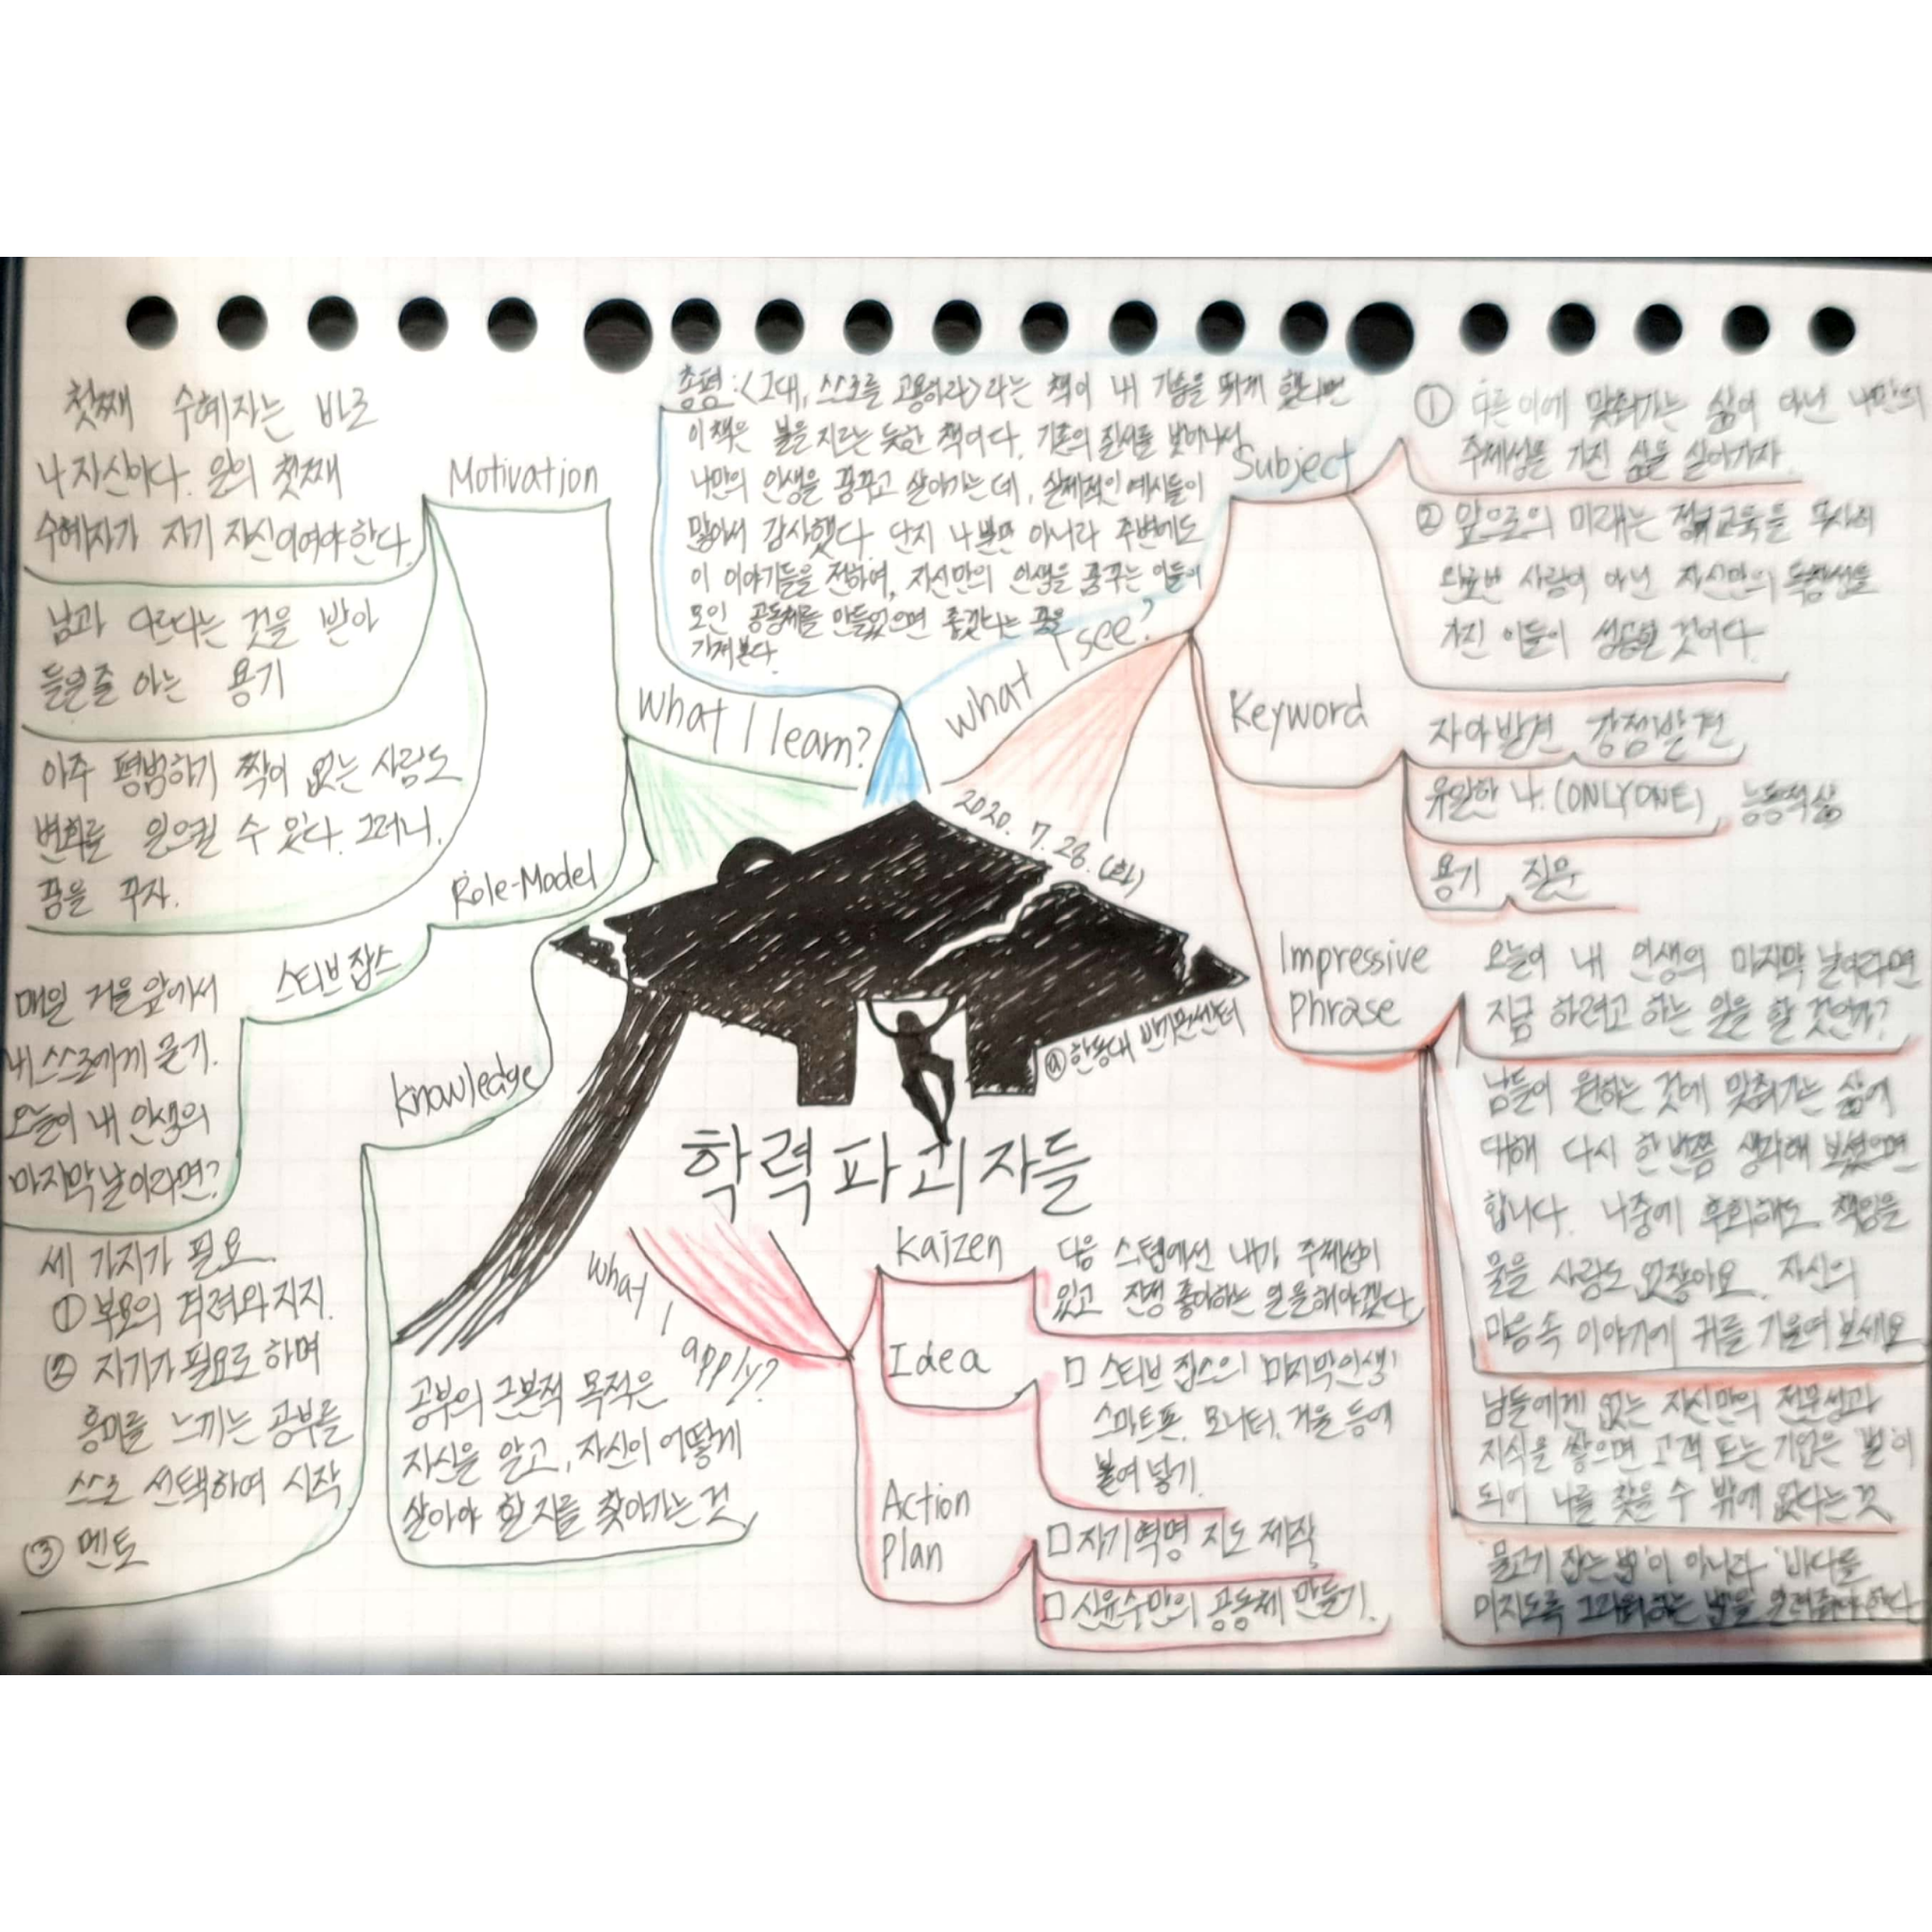 학력파괴자들
2020. 7. 28. (화)
@한동대 반기문센터
총평 : <그대, 스스로를 고용하라>라는 책이 내 가슴을 뛰게 했다면
이 책은 불을 지르는 듯한 책이다. 기존의 질서를 벗어나서
나만의 인생을 꿈꾸고 살아가는데, 실제적인 예시들이
많아서 감사했다. 단지 나 뿐만 아니라 주변에도
이 이야기들을 전하여, 자신만의 인생을 꿈꾸는 이들이
모인 공동체를 만들었으면 좋겠다는 꿈을
가져본다.
What I see?
Subject
① 다른이에 맞춰가는 삶이 아닌 나만의
주체성을 가진 삶을 살아가자.
② 앞으로의 미래는 정규교육을 무사히
완료한 사람이 아닌 자신만의 독창성을
가진 이들이 성공할 것이다.
Keyword
자아발견 강점발견
유일한 나.(ONLYONE), 능동적 삶
용기 질문
Impressive
Phrase
오늘이 내 인생의 마지막 날이라면
지금 하려고 하는 일을 할 것인가?
남들이 원하는 것에 맞춰가는 삶에
대해 다시 한번쯤 생각해 보셨으면
합니다. 나중에 후회해도 책임을
물을 사람도 없잖아요. 자신의
마음속 이야기에 귀를 기울여 보세요
남들에겐 없는 자신만의 전문성과
지식을 쌓으면 고객 또는 기업은 팬이
되어 나를 찾을 수 밖에 없다는 것
'물고기 잡는 법'이 아니라 '바다를
미치도록 그리워하는 법'을 알려줘야 한다
What I learn?
Motivation
첫째 수혜자는 바로
나 자신이다. 일의 첫째
수혜자가 자기 자신이여야 한다.
남과 다르다는 것을 받아
들일줄 아는 용기
아주 평범하기 짝이 없는 사람도
변화를 일으킬 수 있다. 그러니,
꿈을 꾸자.
Role-Model
스티브 잡스
매일 거울 앞에서
내 스스로에게 묻기.
오늘이 내 인생의
마지막 날이라면?
Knowledge
세 가지가 필요.
① 부모의 격려와 지지.
② 자기가 필요로 하며
흥미를 느끼는 공부를
스스로 선택하여 시작
③ 멘토
공부의 근본적 목적은
자신을 알고, 자신이 어떻게
살아야 할 지를 찾아가는 것
What I apply?
Kaizen
다음 스텝에선 내가 주체성이
있고 진정 좋아하는 일을 해야겠다
Idea
□ 스티브 잡스의 '마지막인생'
스마트폰, 모니터, 거울 등에
붙여 넣기.
Action
Plan
□ 자기혁명 지도 제작
□ 신윤수만의 공동체 만들기.